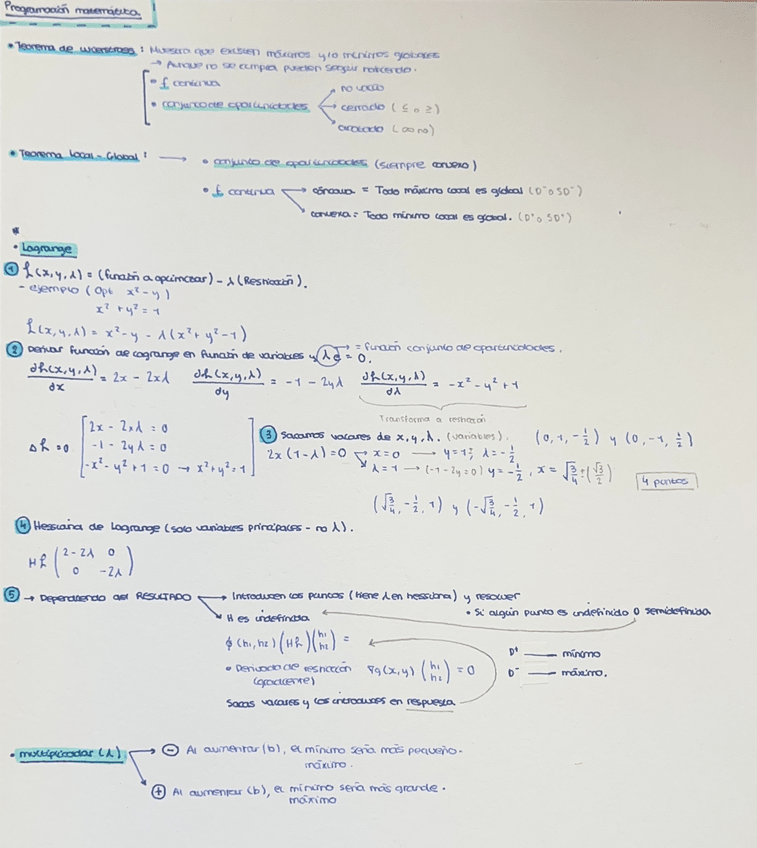 Programación matemática.
• Teorema de Weierstrass : Muestra que existen máximos y/o mínimos globales
→ Aunque no se cumpla pueden seguir habiendo.
• f continua
• conjunto de oportunidades
no vacío
cerrado ( ≤ o ≥ )
acotado ( ∞ no )
• Teorema Local - Global : → • conjunto de oportunidades (siempre convexo)
• f continua
cóncava = Todo máximo local es global (D⁻ o SD⁻)
convexa = Todo mínimo local es global. (D⁺ o SD⁺)
*
• Lagrange
① L(x,y,λ) = (función a optimizar) - λ (Restricción).
- ejemplo (Opt x² - y)
x² + y² = 1
L(x,y,λ) = x² - y - λ(x² + y² - 1)
② Derivar función de Lagrange en función de variables y λ = 0. → = función conjunto de oportunidades.
dL(x,y,λ)/dx = 2x - 2xλ dL(x,y,λ)/dy = -1 - 2yλ dL(x,y,λ)/dλ = -x² - y² + 1
Transforma a restricción
ΔL = 0
2x - 2xλ = 0
-1 - 2yλ = 0
-x² - y² + 1 = 0 → x² + y² = 1
③ Sacamos valores de x, y, λ. (variables).
(0, 1, -1/2) y (0, -1, 1/2)
2x(1-λ) = 0
x = 0 → y = ±1; λ = -1/2
λ = 1 → (-1 - 2y = 0) y = -1/2, x = √3/4 ± (√3/2)
4 puntos
(√3/4, -1/2, 1) y (-√3/4, -1/2, 1)
④ Hessiana de Lagrange (solo variables principales - no λ).
HL ( 2-2λ 0
0 -2λ )
⑤ → Dependiendo del RESULTADO
Introducen los puntos (tiene λ en hessiana) y resolver
• Si algún punto es indefinido o semidefinida
H es indefinida
ϕ (h₁, h₂) (HL) (h₁ h₂) =
• Derivada de restricción ∇g(x,y) (h₁ h₂) = 0
(gradiente)
Sacas valores y los introduces en respuesta
D⁺ — mínimo
D⁻ — máximo.
• multiplicador (λ)
⊖ Al aumentar (b), el mínimo sería más pequeño.
máximo.
⊕ Al aumentar (b), el mínimo sería más grande.
máximo